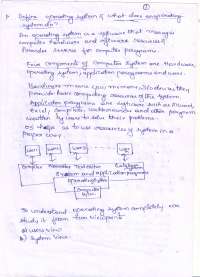 ①
1. Define operating system & what does an operating
system do?
An operating system is a software that manages
computer hardware and software resources &
provides services for computer programs.
Four component of Computer System are Hardware,
operating system, application programs and users.
Hardware means CPU, memory, I/O devices they
provide basic computing resources of the system.
Application programs are software such as MS word,
Excel, compilers, web browsers and other program
written by user to solve their problems.
OS helps us to use resources of system in a
proper way.
user1 user2 user3
Compiler Assembler Text editor Database
System and application programs
operating system
Computer
To understand operating system completely we
study it from two viewpoint
a) User view
b) System view